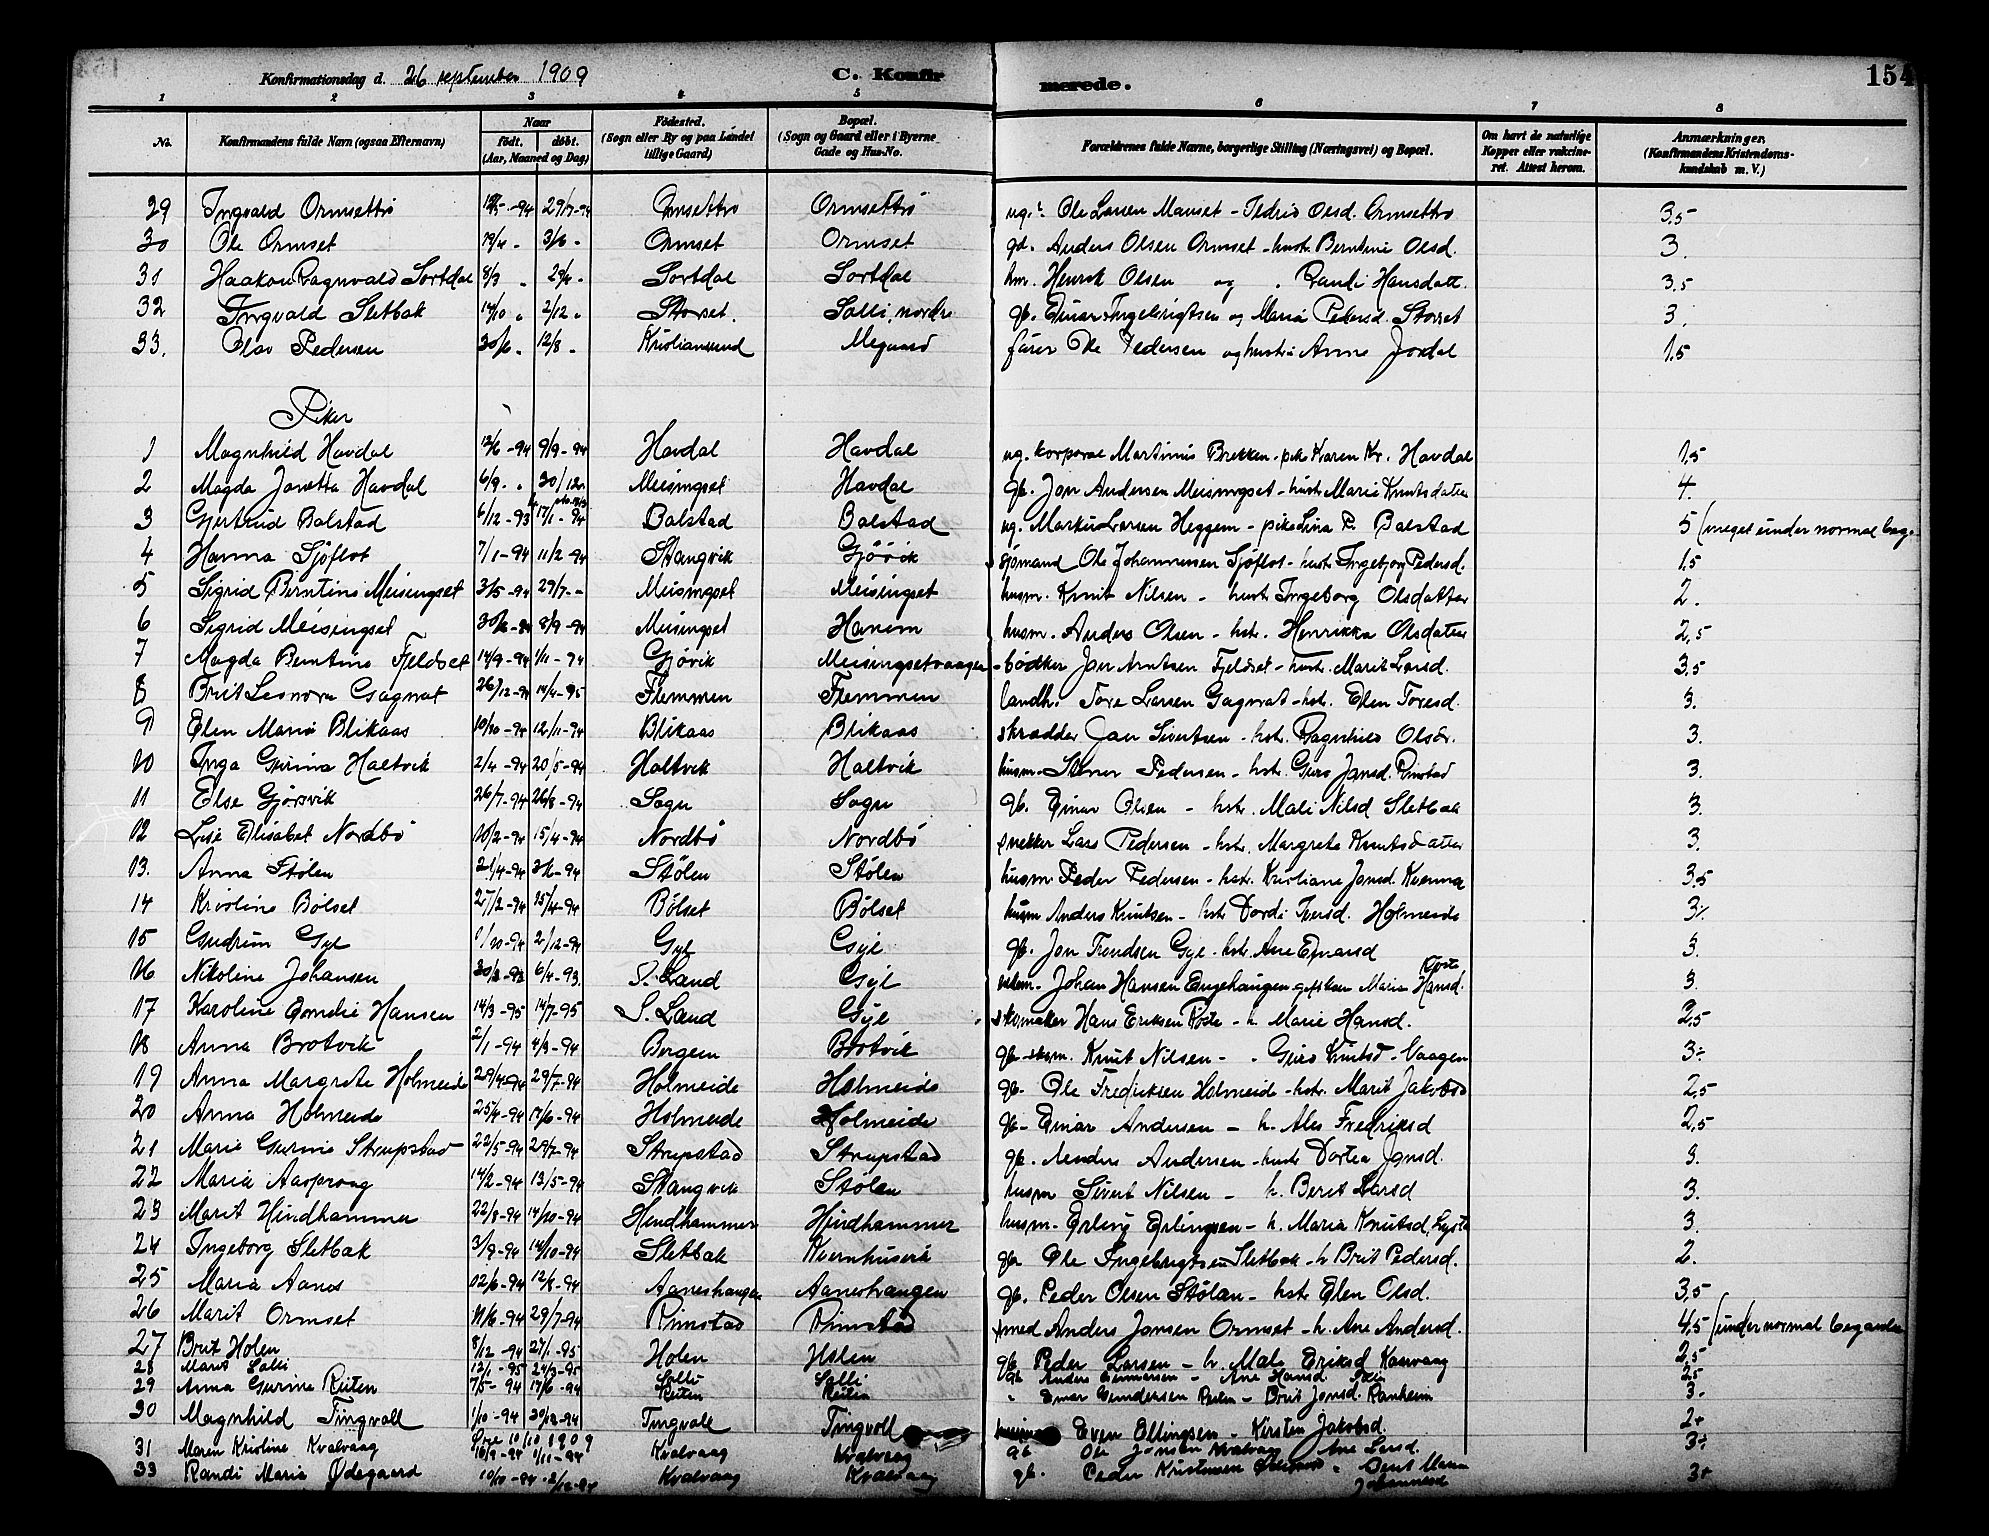 Konfirmationsdag d. 26 september 1909 C. Konfirmerede. 154
1 2 3 4 5 6 7 8
No. Konfirmandens fulde Navn (ogsaa Efternavn) Naar født, døbt. (Aar, Maaned og Dag) Fødested. (Sogn eller By og paa Landet tillige Gaard) Bopæl. (Sogn og Gaard eller i Byerne Gade og Hus-No. Forældrenes fulde Navne, borgerlige Stilling (Næringsvei) og Bopæl. Om havt de naturlige Kopper eller vaccineret. Attest herom. Anmærkninger, (Konfirmandens Kristendomskundskab m. V.)
29 Ingvald Ormsettrø -94 29/7-94 Ormsettrø Ormsettrø ug. Ole Larsen Manset - Olsd. Ormsettrø 3.5
30 Ole Ormset 19/4 " 3/6 " Ormset Ormset gb. Anders Olsen Ormset - hustr. Berntine Olsd. 3.
31 Haakon Ragnvald Sortdal 8/3 " 29/4 " Sortdal Sortdal hm. Henrik Olsen og Randi Hansdatt. 3.5
32 Ingvald Sletbak 14/10 " 2/12 " Storset Solli, nordre gb. Einar Ingebrigtsen og Maria Pedersd. Storset 3.
33. Olav Pedersen 30/6 " 12/8 " Kristiansund Megaard Ole Pedersen og hustru Anne Jordal 1.5
Piker
1 Magnhild Havdal 12/6-94 9/9-94 Havdal Havdal ug. korporal Martinus Brekken - pike Karen Kr. Havdal 1.5
2 Magda Jonetta Havdal 6/9 " 30/12 Meisingset Havdal gb. Jon Andersen Meisingset - hustr. Marie Knutsdatter 4.
3 Gjertrud Balstad 6/12-93 17/1-94 Balstad Balstad ug. Markus Larsen Heggem - pike Lina P. Balstad 5 (meget under normal beg.
4 Hanna Sjøflot 7/1-94 11/2-94 Stangvik Gjøvik sjømand Ole Johannesen Sjøflot - hustr. Ingebjørg Pedersd. 1.5
5 Sigrid Berntine Meisingset 3/5-94 29/7 - Meisingset Meisingset husm. Knut Nilsen - hustr Ingeborg Olsdatter 2.
6 Sigrid Meisingset 30/6-94 8/9-94 Meisingset Hanem husm. Anders Olsen - hstr. Henrikka Olsdatter 2.5
7 Magda Berntine Fjeldset 14/9-94 1/11-94 Gjøvik Meisingsetvaagen bødker Jon Arntsen Fjeldset - hustr. Marit Larsd. 3.5
8 Brit Leonora Gagnat 26/12-94 14/4-95 Flemmen Flemmen landh. Tore Larsen Gagnat - hst. Elen Toresd. 3.
9 Elen Marie Blikaas 10/10-94 12/11-94 Blikaas Blikaas skrædder Jan Sivertsen - hstr. Ragnhild Olsd. 3.
10 Inga Gurina Holtvik 2/4-94 20/5-94 Holtvik Holtvik husm. Stener Pedersen - hstr. Guro Jonsd. Rimstad 3.
11 Else Gjørsvik 26/7-94 26/8-94 Sogn Sogn gb. Einar Olsen - hstr. Mali Nilsd Sletbak 3.
12 Lise Elisabet Nordbø 10/2-94 15/4-94 Nordbø Nordbø snekker Lars Pedersen - hstr. Margrete Knutsdatter 3.
13. Anna Stølen 21/4-94 3/6-94 Stølen Stølen husm Peder Pedersen - hstr. Kristiane Jonsd. Kvenna 3.5
14 Kristine Bølset 27/2-94 15/4-94 Bølset Bølset husm Anders Knutsen - hstr Dordi Iversd. Holmeide 3÷
15 Gudrun Gyl 1/10-94 2/12-94 Gyl Gyl gb. Jon Trondsen Gyl - hstr. Ane Einarsd 3.
16 Nikoline Johansen 6/4-93. S. Land Gyl Johan Hansen Engehaugen gift Maria Hansd. Roste 3.
17 Karoline Emelie Hansen 14/3-95 14/7-95 S. Land Gyl skomaker Hans Eriksen Roste - h. Marie Hansd. 2.5
18 Anna Brotvik 2/1-94 4/3-94 Bergem Brotvik gb-skom. Knut Nilsen - " Guro Knutsd - Vaagen 3÷
19 Anna Margrete Holmeide 29/4-94 29/7-94 Holmeide Holmeide gb. Ole Fredriksen Holmeide - hstr. Marit Jakobsd 2.5
20 Anna Holmeide 25/4-94 17/6-94 Holmeide Holmeide gb- Einar Andersen - h. Ales Fredriksd 2.5
21 Marie Gurine Strupstad 22/5-94 29/7-94 Strupstad Strupstad gb. Anders Andersen - hustr Dortea Jonsd. 3.
22 Maria Aasprong 14/2-94 13/5-94 Stangvik Stølen husm Sivert Nilsen - h. Berit Larsd 3.
23 Marit Hindhammer 22/8-94 14/10-94 Hindhammer Hindhammer husm. Erling Erlingsen - h. Maria Knutsd. 3.
24 Ingeborg Sletbak 3/9-94 14/10-94 Sletbak Kvernhusvik gb Ole Ingebrigtsen Sletbak - h Brit Pedersd. 2.
25 Maria Aanes 12/6-94 12/8-94 Aaneshaugen Aaneshaugen gb. Peder Olsen Stølan - hstr Elen Olsd. 3.5
26 Marit Ormset 11/6-94 29/7-94 Rimstad Rimstad smed Anders Jonsen Ormset - h. Ane Andersd. 4.5 (under normal begavelse
27 Brit Holen 8/12-94 27/1-95 Holen Holen gb Peder Larsen - h. Mali Eriksd Kanvaag 2.5
28 Marit Solli 12/1-95 24/3-95 Solli Solli gb Anders Gunnarsen - Ane Hansd 2.5
29 Anna Gurine Reiten 7/5-94 17/6-94 Reiten Reiten " Einar Gundersen Reiten - Brit Jonsd. Ranheim 3-
30 Magnhild Tingvoll 1/10-94 30/12-94 Tingvoll Tingvoll Even Ellingsen - Kirsten Jakobsd. 2+
10/10 1909
31 Maren Kristine Kvalvaag 16/9-94 1/11-94 Kvalvaag Kvalvaag gb Ole Jonsen Kvalvaag Ane Larsd. 3÷
33 Randi Maria Ødegaard 10/10-94 2/12-94 Kvalvaag Kvalvaag gb. Peder Kristensen " Berit Maria Johannesd 3+